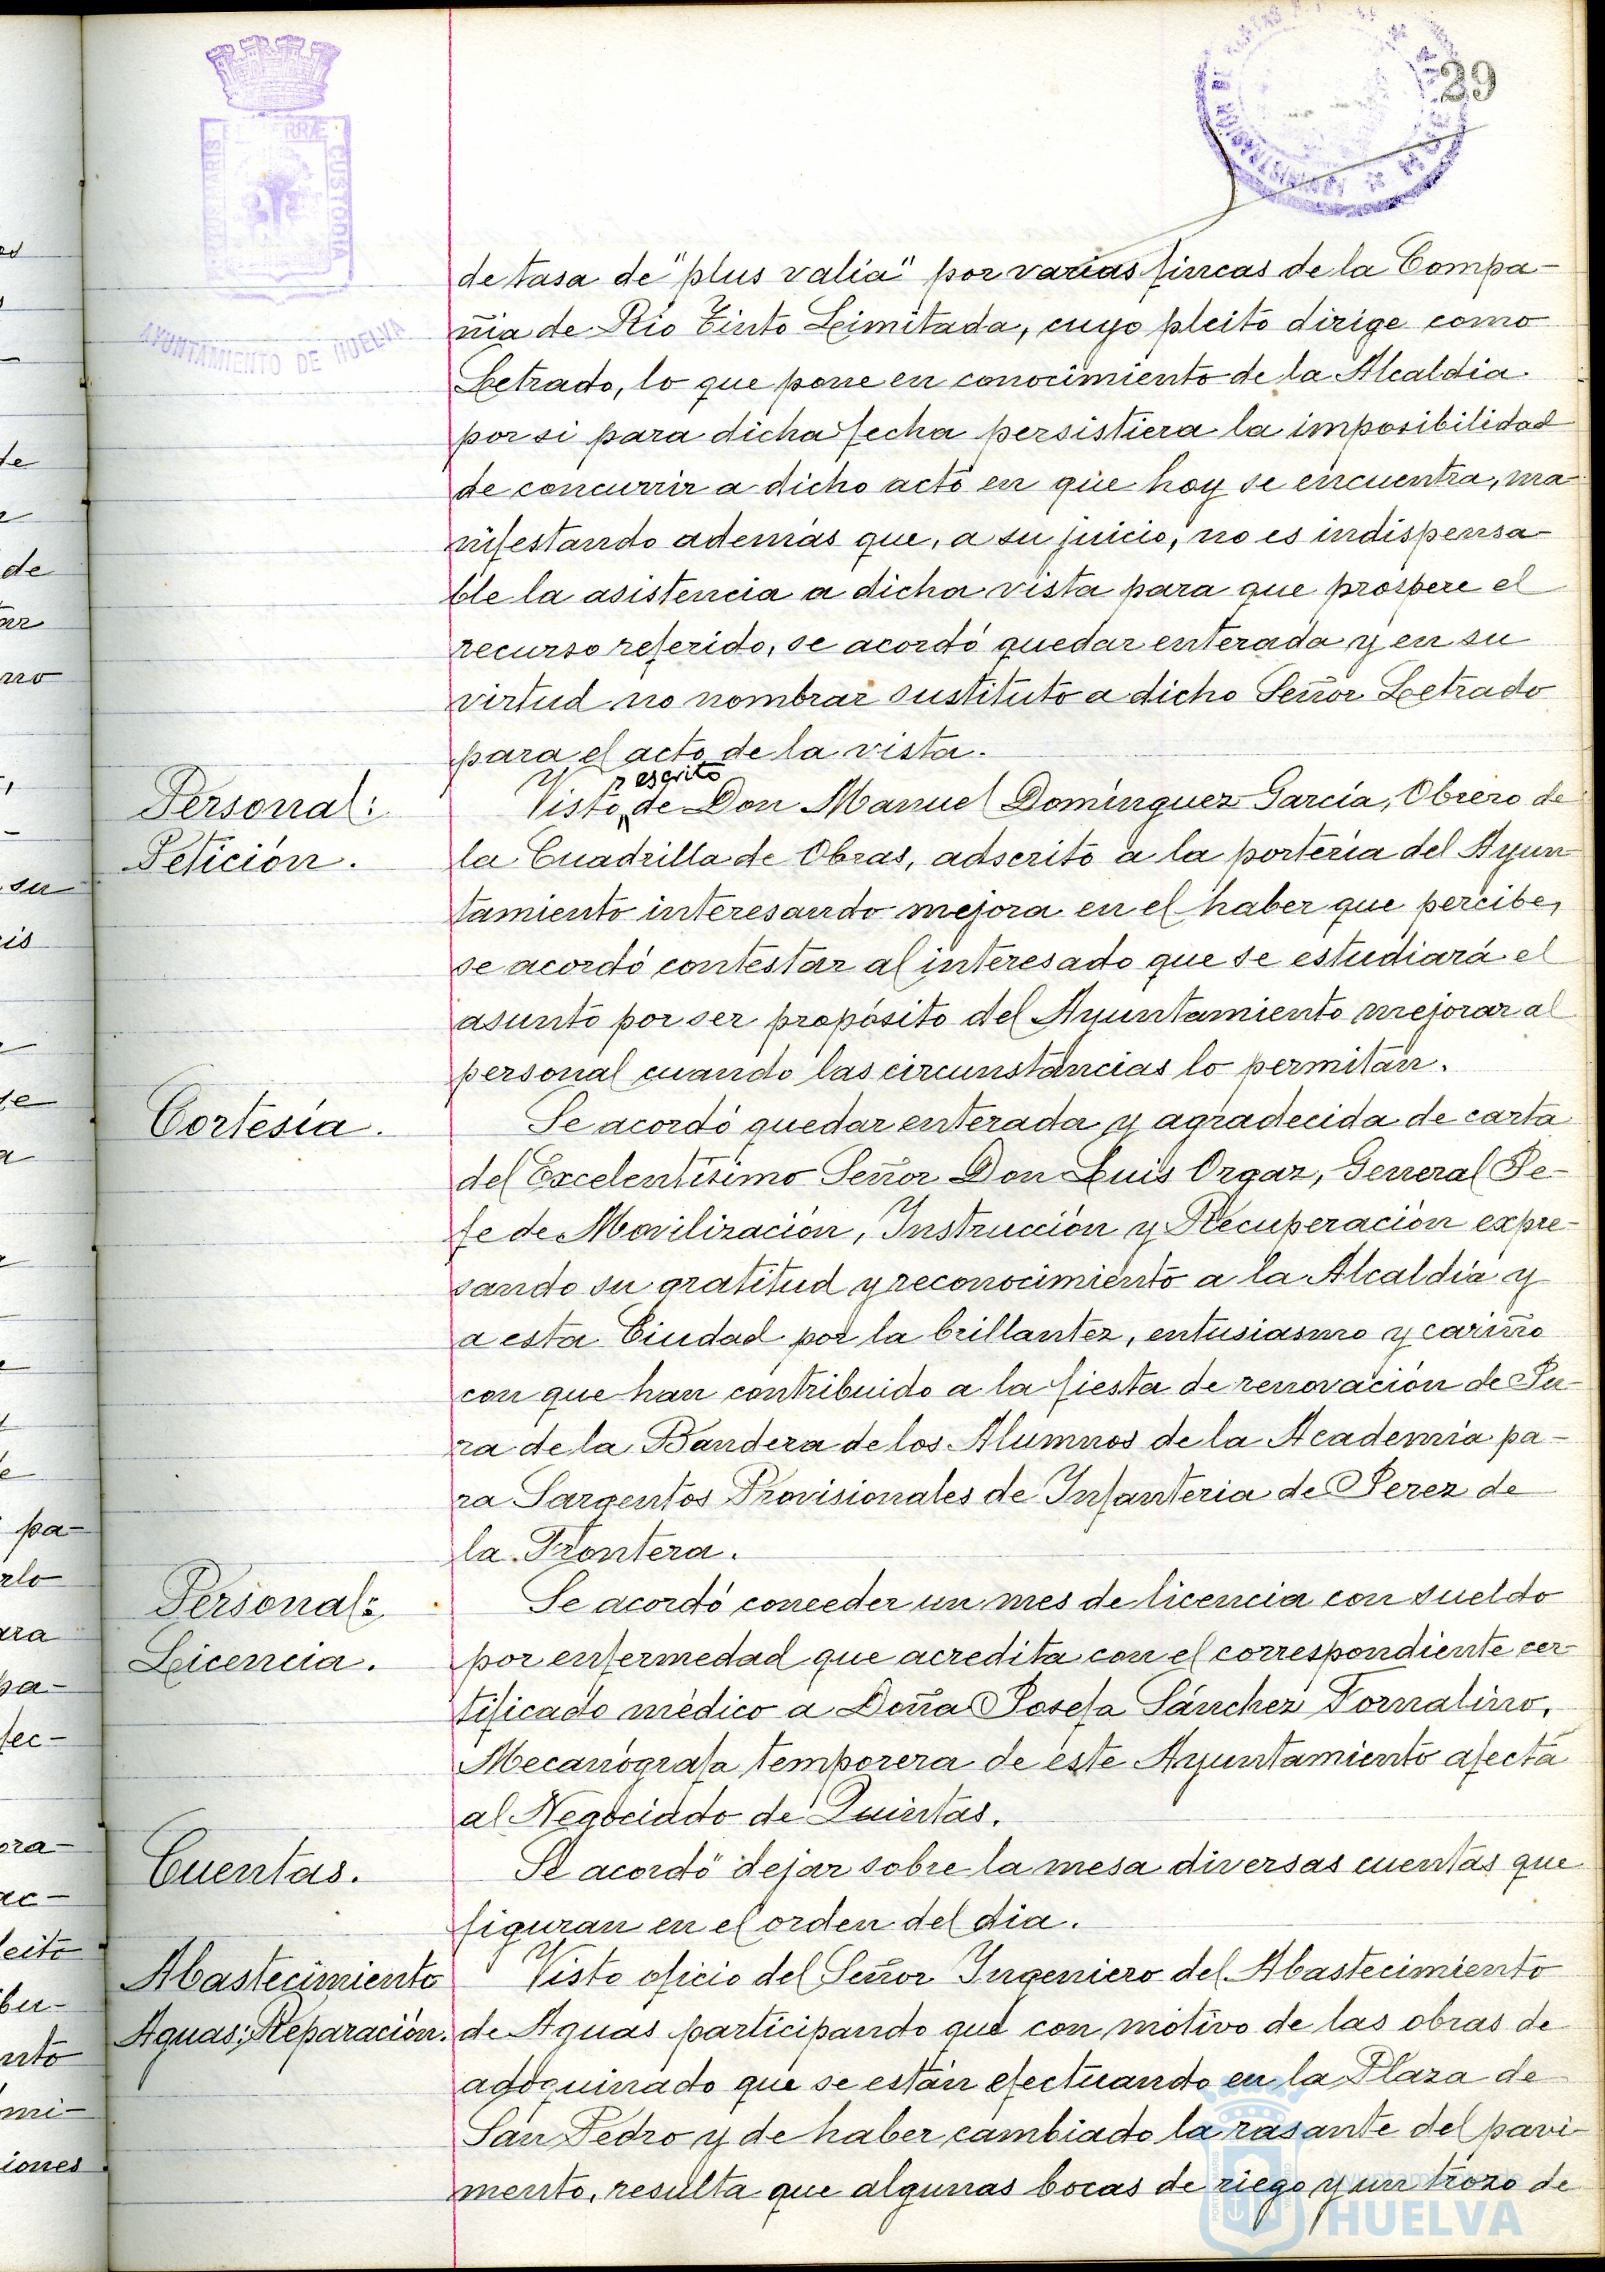 29
PORTUS MARIS ET TERRÆ CUSTODIA
AYUNTAMIENTO DE HUELVA
de tasa de "plus valia" por varias fincas de la Compa-
ñia de Rio Tinto Limitada, cuyo pleito dirige como
Letrado, lo que pone en conocimiento de la Alcaldia
por si para dicha fecha persistiera la imposibilidad
de concurrir a dicho acto en que hoy se encuentra, ma-
nifestando además que, a su juicio, no es indispensa-
ble la asistencia a dicha vista para que prospere el
recurso referido, se acordó quedar enterada y en su
virtud no nombrar sustituto a dicho Señor Letrado
para el acto de la vista.
Personal:
Petición.
escrito
Visto de Don Manuel Domínguez García, Obrero de
la Cuadrilla de Obras, adscrito a la portería del Ayun-
tamiento interesando mejora en el haber que percibe,
se acordó contestar al interesado que se estudiará el
asunto por ser propósito del Ayuntamiento mejorar al
personal cuando las circunstancias lo permitan.
Cortesía.
Se acordó quedar enterada y agradecida de carta
del Excelentísimo Señor Don Luis Orgaz, General Je-
fe de Movilización, Instrucción y Recuperación expre-
sando su gratitud y reconocimiento a la Alcaldía y
a esta Ciudad por la brillantez, entusiasmo y cariño
con que han contribuido a la fiesta de renovación de Ju-
ra de la Bandera de los Alumnos de la Academia pa-
ra Sargentos Provisionales de Infanteria de Jerez de
la Frontera.
Personal:
Licencia.
Se acordó conceder un mes de licencia con sueldo
por enfermedad que acredita con el correspondiente cer-
tificado médico a Doña Josefa Sánchez Tornalino,
Mecanógrafa temporera de este Ayuntamiento afecta
al Negociado de Quintas.
Cuentas.
Se acordó dejar sobre la mesa diversas cuentas que
figuran en el orden del dia.
Abastecimiento
Aguas: Reparación.
Visto oficio del Señor Ingeniero del Abastecimiento
de Aguas participando que con motivo de las obras de
adoquinado que se están efectuando en la Plaza de
San Pedro y de haber cambiado la rasante del pavi-
mento, resulta que algunas bocas de riego y un trozo de
Ayuntamiento de
HUELVA